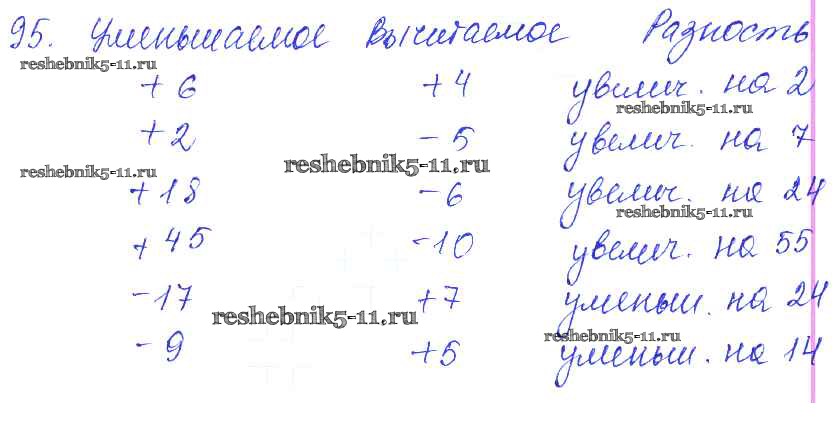 95. Уменьшаемое Вычитаемое Разность
reshebnik5-11.ru
+6 +4 увелич. на 2
reshebnik5-11.ru
+2 -5 увелич. на 7
reshebnik5-11.ru
reshebnik5-11.ru
+18 -6 увелич. на 24
reshebnik5-11.ru
+45 -10 увелич. на 55
-17 +7 уменьш. на 24
reshebnik5-11.ru
reshebnik5-11.ru
-9 +5 уменьш. на 14